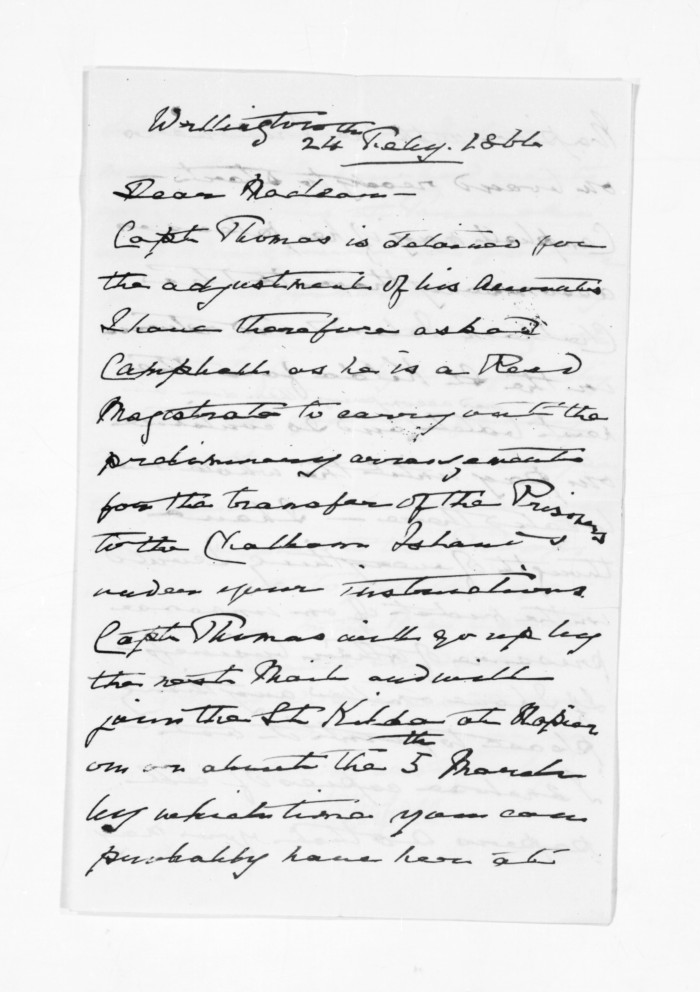 Wellington
24th Feby. 1866
Dear Maclean —
Capt Thomas is detained for
the adjustment of his Accounts
I have therefore asked
Campbell as he is a Resd
Magistrate to carry out the
preliminary arrangements
for the transfer of the Prisoners
to the Chatham Islands
under your instructions
Capt Thomas will go up by
the next Mail and will
join the St Kilda at Napier
on or about the 5th March
by which time you can
probably have her at